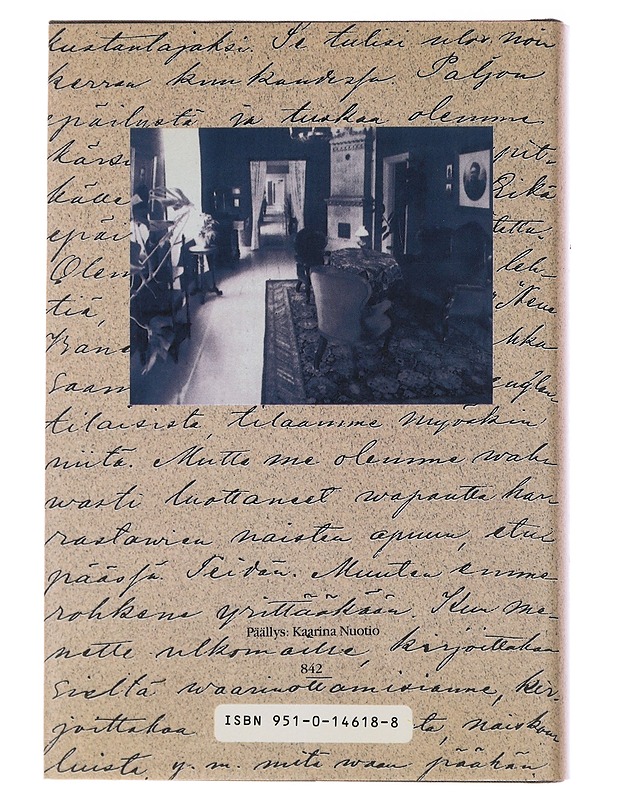 kustantajaksi. Se tulisi ulos, noin
kerran kuukaudessa. Paljon
epäilystä ja tuskaa olemme
pit-
kätte Eikä
epäi tettu.
Olem leh-
tiä, "Neue
Saam englan
tilaisista, tilaamme myöskin
niitä. Mutta me olemme wah-
wasti luottaneet wapautta har-
rastawien naisten apuun, etu-
päässä Teidän. Muuten emme
rohkene yrittääkään. Kun me-
nette ulkomaille, kirjoittakaa
Päällys: Kaarina Nuotio
842
sieltä waarinottamisianne, kir-
joittakaa ta, naiskou-
luista, y. m. mitä waan päähän
ISBN 951-0-14618-8